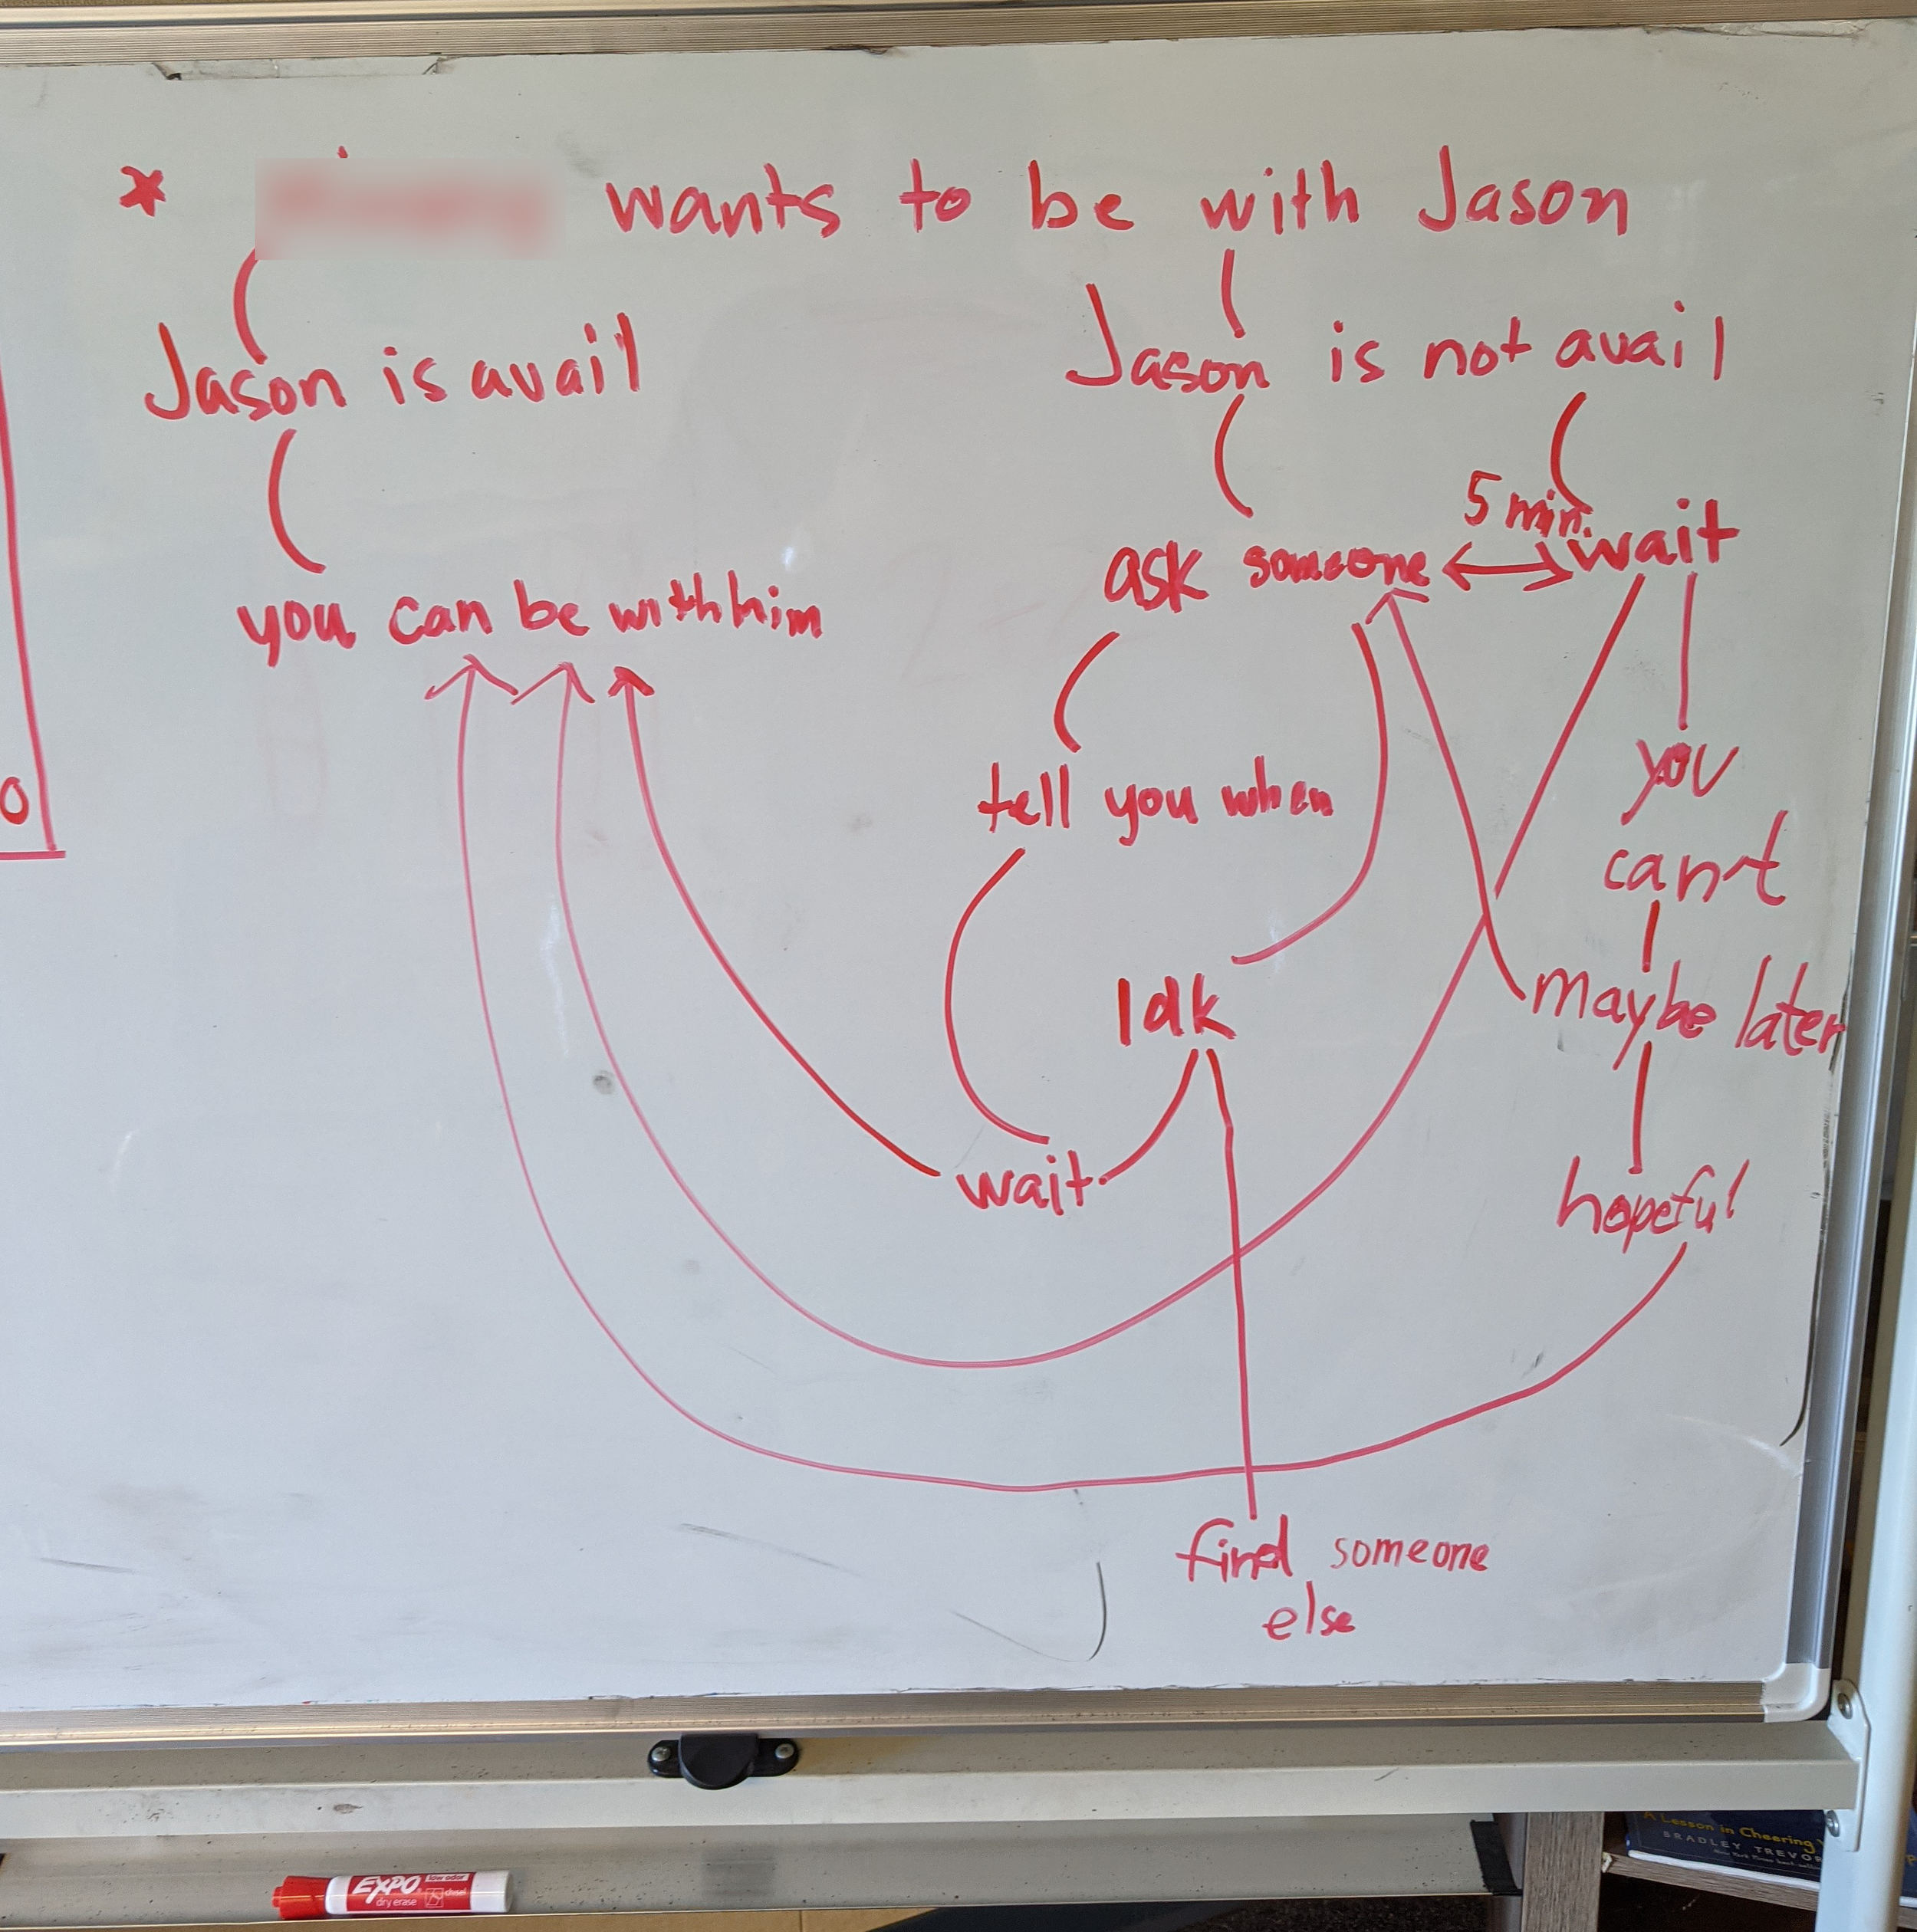 * wants to be with Jason
Jason is avail
Jason is not avail
5 min.
ask someone
wait
you can be with him
tell you when
you
can't
Idk
maybe later
wait
hopeful
find someone
else
O
EXPO
low odor
dry erase
chisel
A Lesson in Cheering
BRADLEY TREVOR